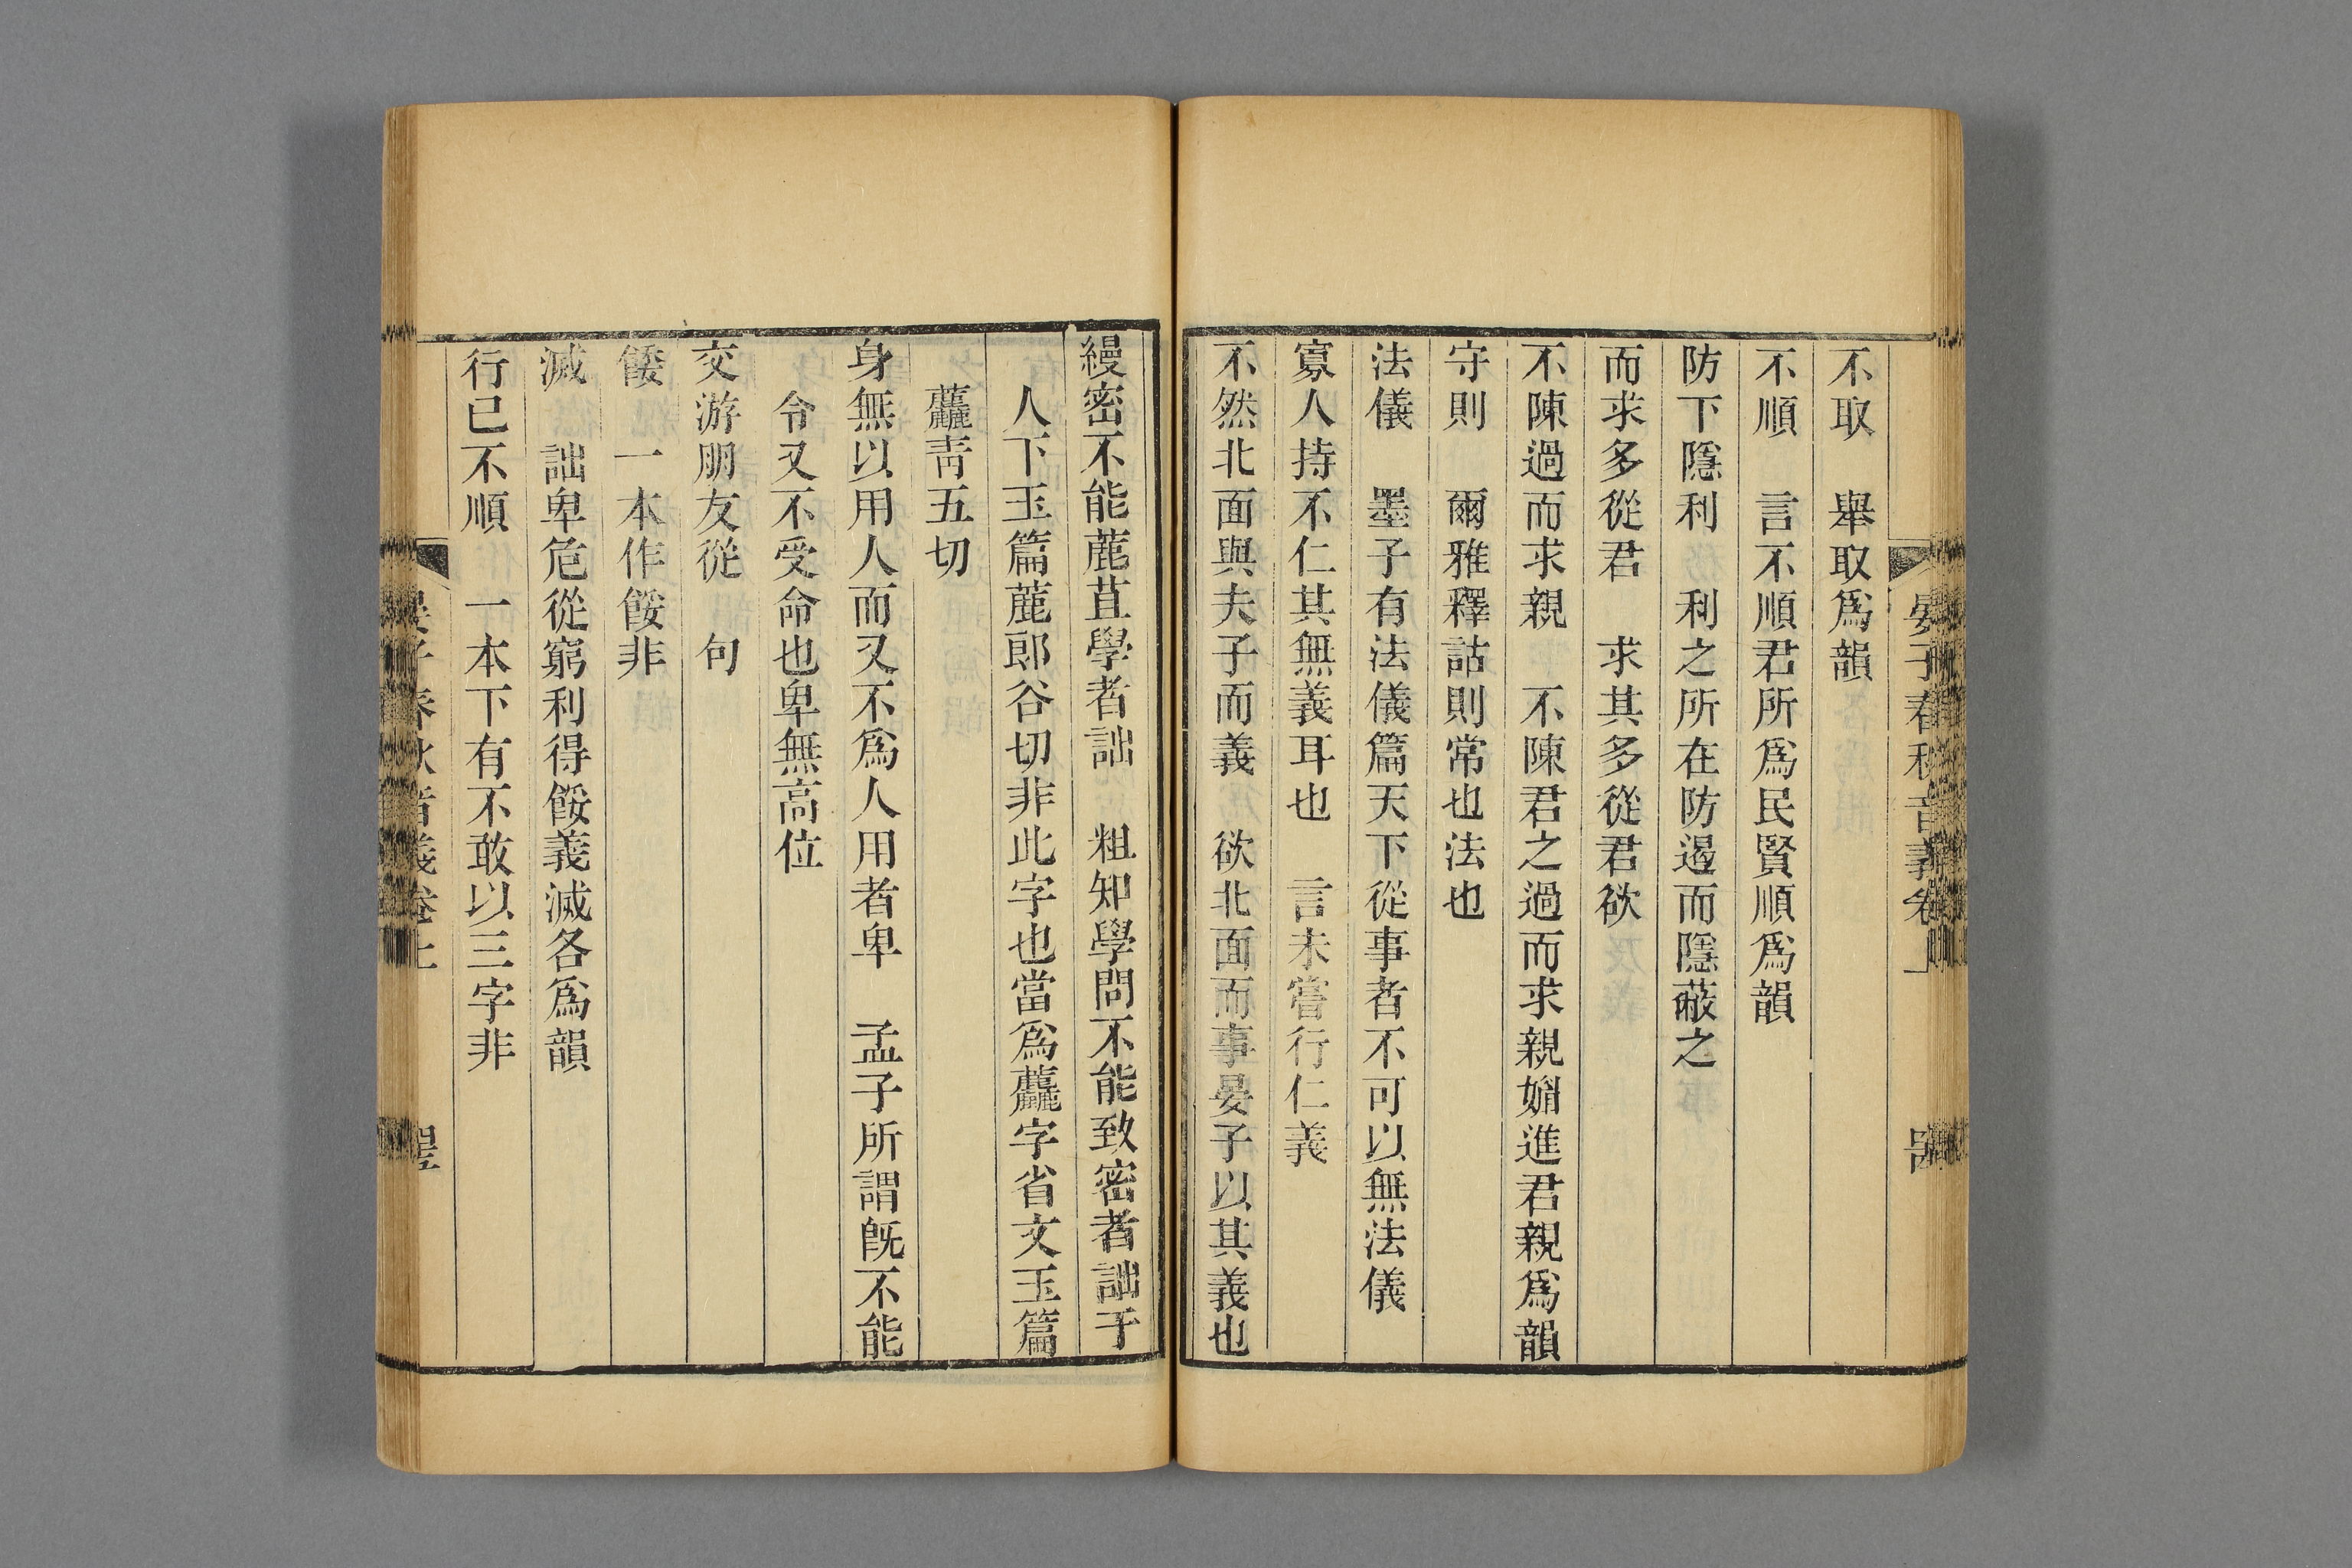 晏子春秋音義卷上
不取　舉取爲韻
不順　言不順君所爲民賢順爲韻
防下隱利　利之所在防遏而隱蔽之
而求多從君　求其多從君欲
不陳過而求親　不陳君之過而求親媚進君親爲韻
守則　爾雅釋詁則常也法也
法儀　墨子有法儀篇天下從事者不可以無法儀
寡人持不仁其無義耳也　言未嘗行仁義
不然北面與夫子而義　欲北面而事晏子以其義也
縵密不能蔍苴學者詘　粗知學問不能致密者詘于
人下玉篇蔍郎谷切非此字也當爲麤字省文玉篇
麤靑五切
身無以用人而又不爲人用者卑　孟子所謂旣不能
令又不受命也卑無高位
交游朋友從　句
餧　一本作餒非
滅　詘卑危從窮利得餒義滅各爲韻
行已不順　一本下有不敢以三字非
晏子春秋音義卷上